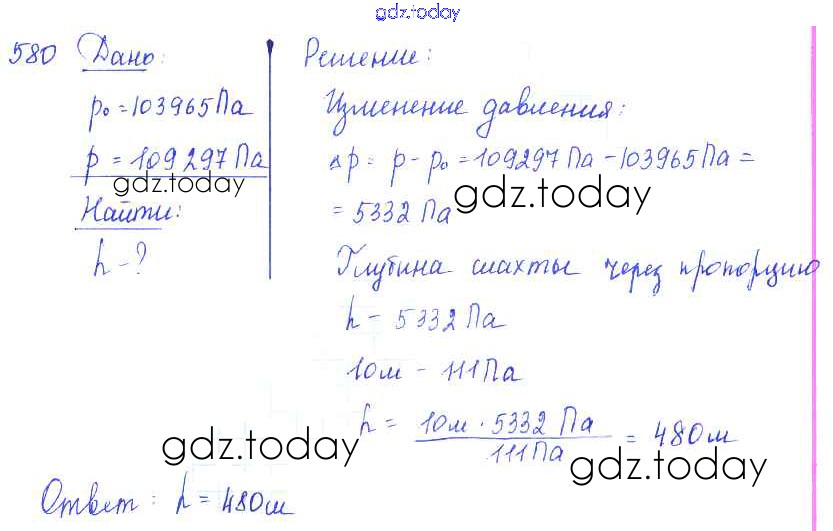 gdz.today
580 Дано:
p₀ = 103965 Па
p = 109297 Па
gdz.today
Найти:
h - ?
Решение:
Изменение давления:
Δp = p - p₀ = 109297 Па - 103965 Па =
gdz.today
= 5332 Па
Глубина шахты через пропорцию
h - 5332 Па
10м - 111 Па
h = 10м · 5332 Па / 111 Па = 480м
gdz.today
gdz.today
Ответ: h = 480м